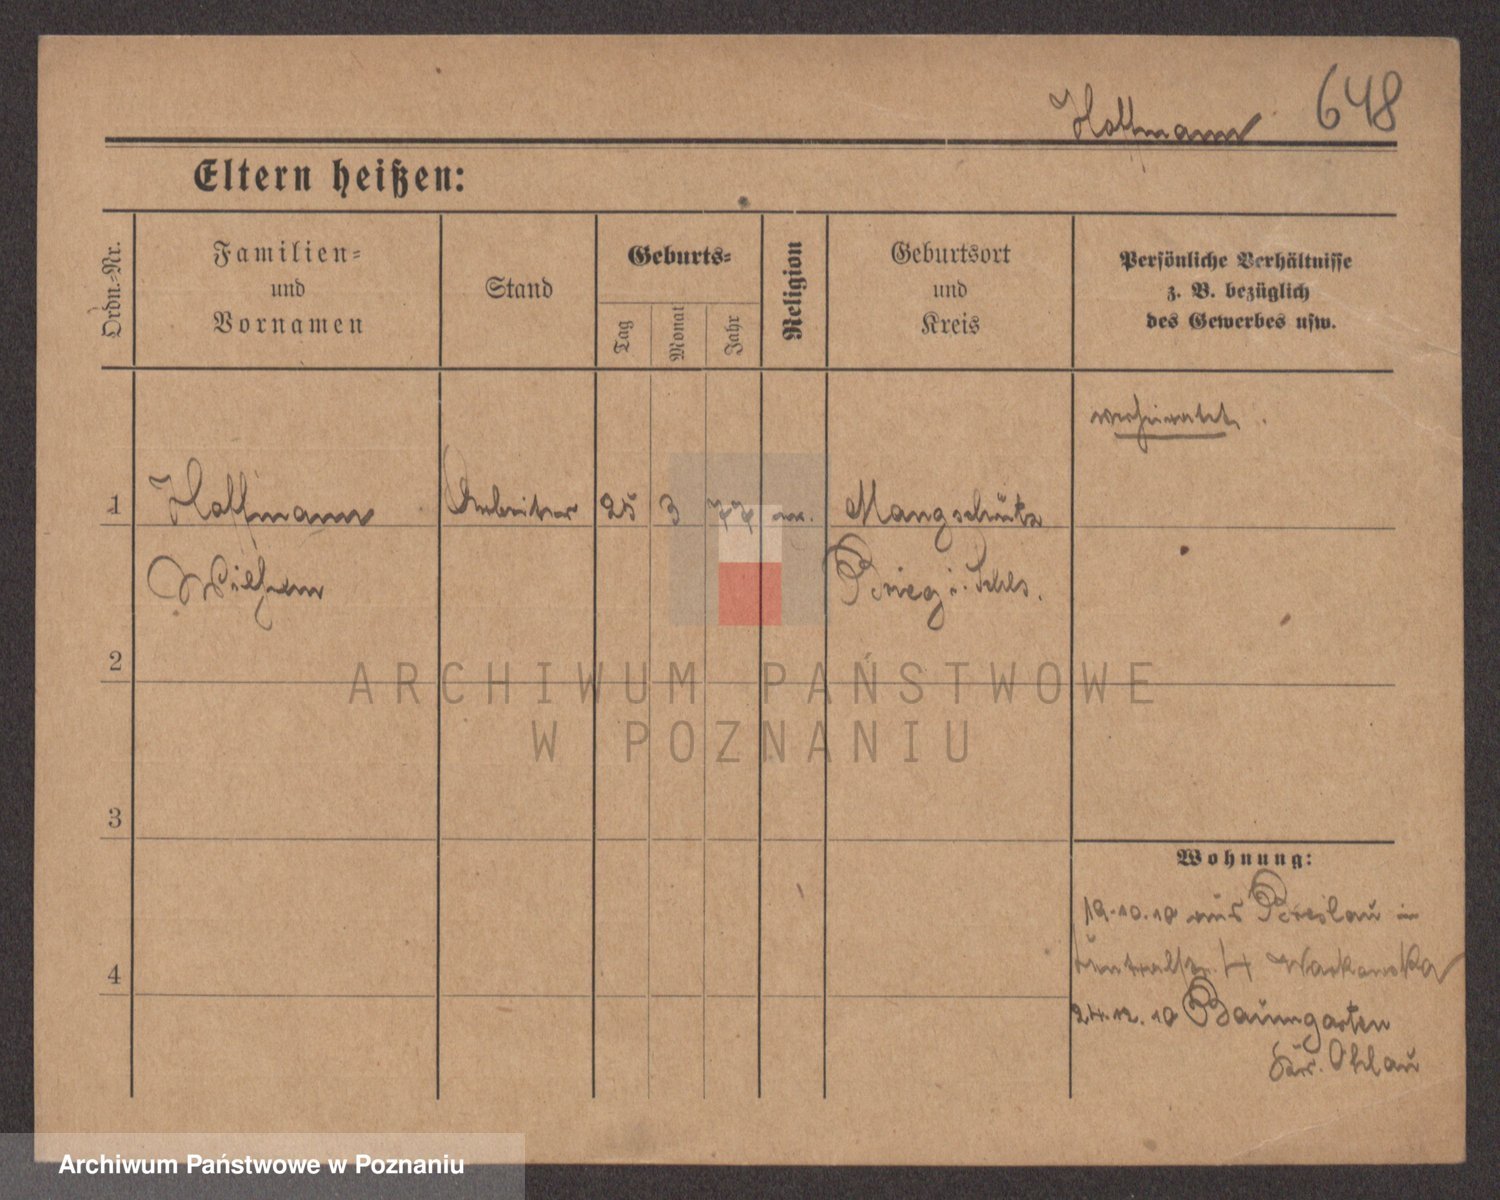 Hoffmann 648
Eltern heißen:
Ordn.-Nr.
Familien-
und
Vornamen
Stand
Geburts-
Tag
Monat
Jahr
Religion
Geburtsort
und
Kreis
Persönliche Verhältnisse
z. B. bezüglich
des Gewerbes usw.
verheiratet.
1 Hoffmann Arbeiter 25 3 77 ev. Mangschütz
Wilhelm Brieg i. Schles.
2
ARCHIWUM PAŃSTWOWE
W POZNANIU
3
Wohnung:
19.10.10 aus Breslau in
4
24.12.10 Baumgarten
Kr. Ohlau
Archiwum Państwowe w Poznaniu